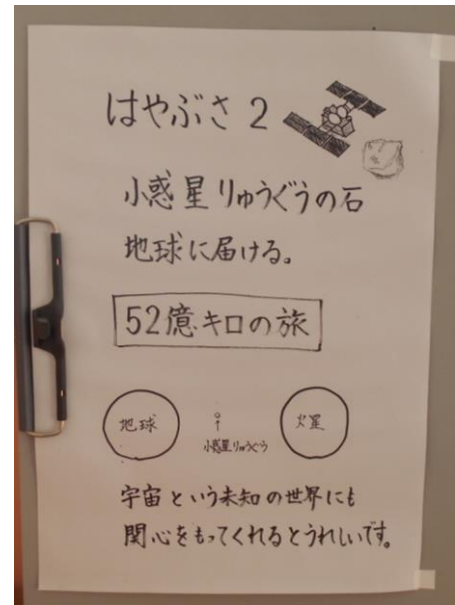 はやぶさ2
小惑星りゅうぐうの石
地球に届ける。
52億キロの旅
地球
小惑星りゅうぐう
火星
宇宙という未知の世界にも
関心をもってくれるとうれしいです。